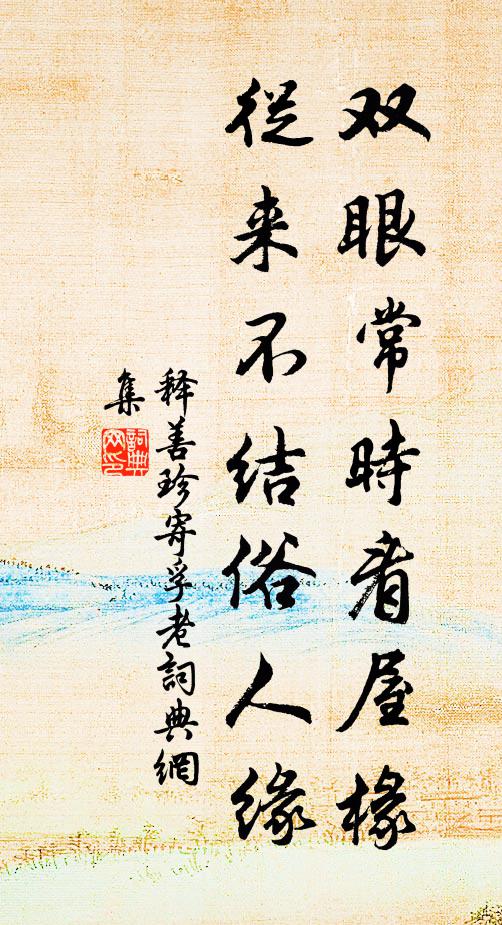 双眼常時看屋椽
從来不结俗人缘
释善珍寄孚老詞典網
集
詞典
网印